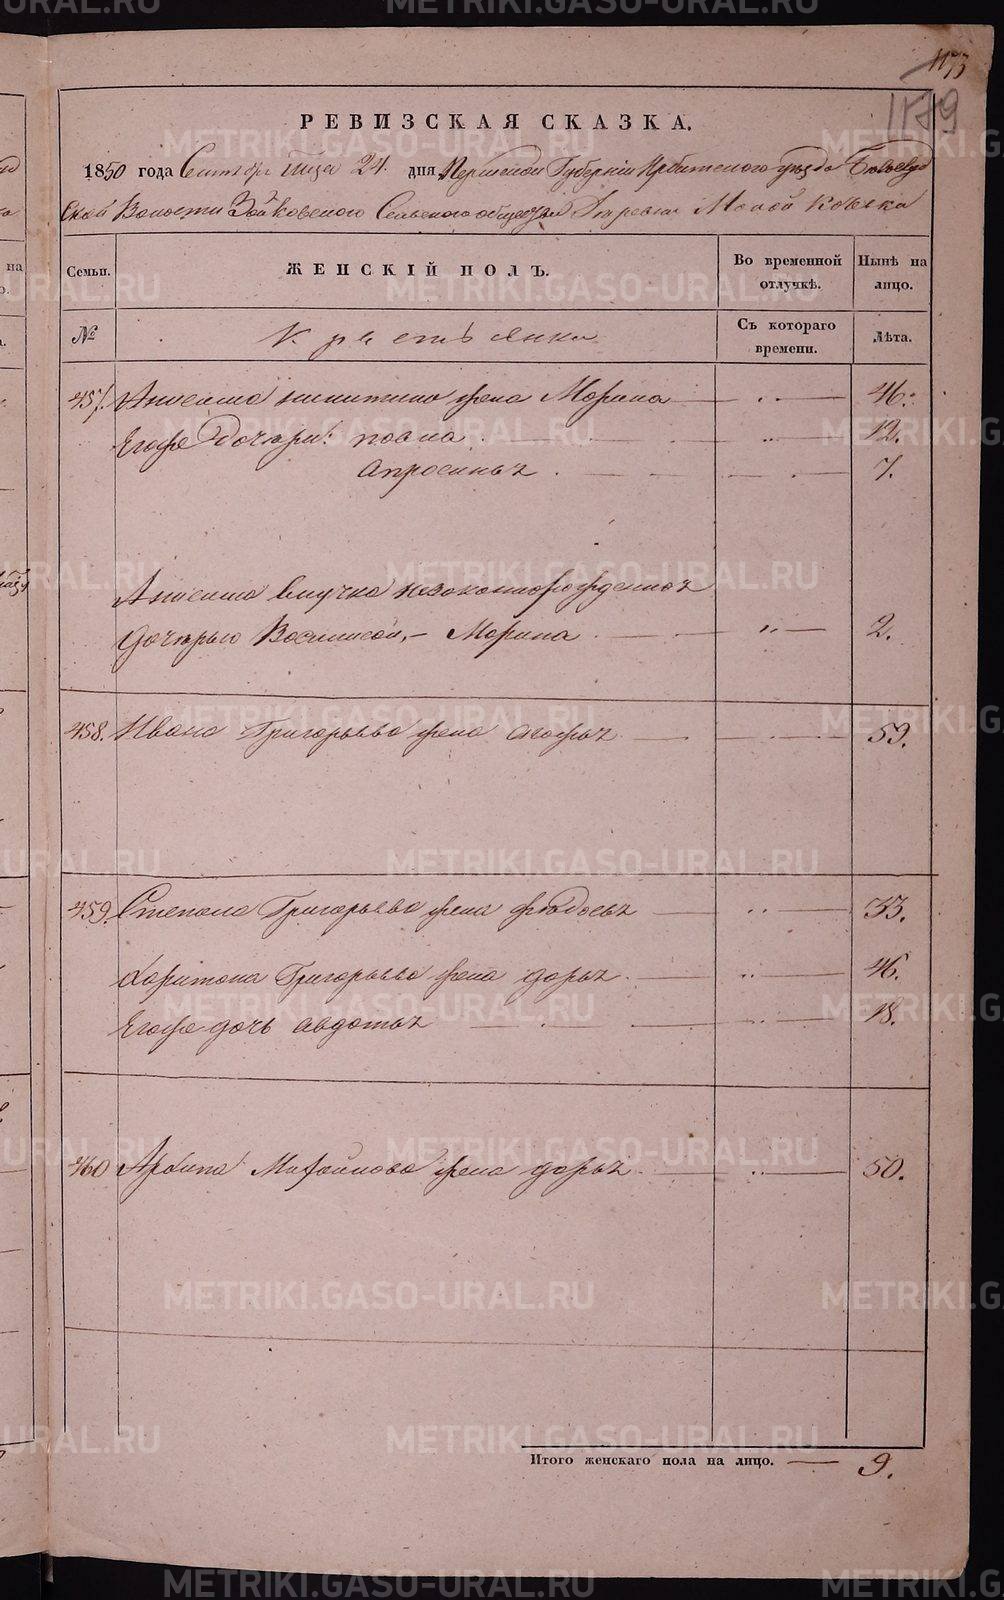 1173
1179
РЕВИЗСКАЯ СКАЗКА.
1850 года Сентября мца 24. дня Пермской Губерніи Ирбитского уезда
ской Волости Зайковского Сельского общества Деревни Малой Ко
Семьи. ЖЕНСКІЙ ПОЛЪ. Во временной отлучкѣ. Нынѣ на лицо.
№ Крестьянки Съ котораго времени. Лѣта.
457. никитина жена Марина 46.
Егоже Дочери: 12.
Апросинья 7.
внучка незаконнорожденная
дочерью Василисой, – Марина 2.
458. Ивана Григорьева жена агафья 59.
459. Степана Григорьева жена федосья 33.
Харитона Григорьева жена дарья 46.
Егоже дочь авдотья 18.
460 Архипа жена дарья 50.
Итого женскаго пола на лицо. 9.
METRIKI.GASO-URAL.RU